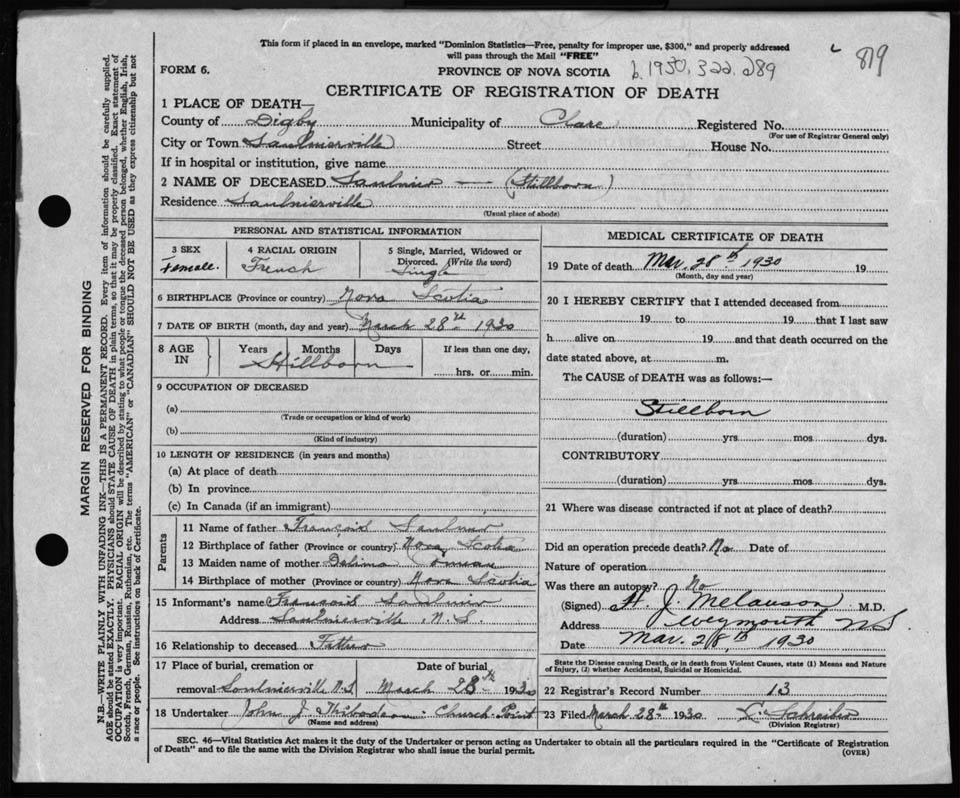 This form if placed in an envelope, marked "Dominion Statistics—Free, penalty for improper use, $300," and properly addressed
will pass through the Mail "FREE"
819
FORM 6.
PROVINCE OF NOVA SCOTIA
b. 1930. 322. 289
CERTIFICATE OF REGISTRATION OF DEATH
1 PLACE OF DEATH—
County of Digby Municipality of Clare Registered No.
(For use of Registrar General only)
City or Town Saulnierville Street House No.
If in hospital or institution, give name
2 NAME OF DECEASED Saulnier — (Stillborn)
Residence Saulnierville
(Usual place of abode)
PERSONAL AND STATISTICAL INFORMATION
3 SEX 4 RACIAL ORIGIN 5 Single, Married, Widowed or
Divorced. (Write the word)
Female. French Single
6 BIRTHPLACE (Province or country) Nova Scotia
7 DATE OF BIRTH (month, day and year) March 28th 1930
8 AGE IN Years Months Days If less than one day,
Stillborn hrs. or min.
9 OCCUPATION OF DECEASED
(a)
(Trade or occupation or kind of work)
(b)
(Kind of industry)
10 LENGTH OF RESIDENCE (in years and months)
(a) At place of death
(b) In province
(c) In Canada (if an immigrant)
Parents
11 Name of father François Saulnier
12 Birthplace of father (Province or country) Nova Scotia
13 Maiden name of mother Comeau
14 Birthplace of mother (Province or country) Nova Scotia
15 Informant's name François Saulnier
Address Saulnierville N.S.
16 Relationship to deceased Father
17 Place of burial, cremation or Date of burial
removal Saulnierville N.S. March 28th 1930
18 Undertaker John J. Thibodeau Church Point
(Name and address)
MEDICAL CERTIFICATE OF DEATH
19 Date of death Mar. 28th 1930 19
(Month, day and year)
20 I HEREBY CERTIFY that I attended deceased from
19 to 19 that I last saw
h alive on 19 and that death occurred on the
date stated above, at m.
The CAUSE of DEATH was as follows:—
Stillborn
(duration) yrs. mos. dys.
CONTRIBUTORY
(duration) yrs. mos. dys.
21 Where was disease contracted if not at place of death?
Did an operation precede death? No Date of
Nature of operation
Was there an autopsy? No
(Signed) H. J. Melanson M.D.
Address Weymouth N.S.
Date Mar. 28th 1930
State the Disease causing Death, or in death from Violent Causes, state (1) Means and Nature
of Injury, (2) whether Accidental, Suicidal or Homicidal.
22 Registrar's Record Number 13
23 Filed March 28th 1930 Schreiber
(Division Registrar)
SEC. 46—Vital Statistics Act makes it the duty of the Undertaker or person acting as Undertaker to obtain all the particulars required in the "Certificate of Registration
of Death" and to file the same with the Division Registrar who shall issue the burial permit.
(OVER)
MARGIN RESERVED FOR BINDING
N.B.—WRITE PLAINLY WITH UNFADING INK—THIS IS A PERMANENT RECORD. Every item of information should be carefully supplied.
AGE should be stated EXACTLY. PHYSICIANS should STATE CAUSE OF DEATH in plain terms, so that it may be properly classified. Exact statement of
OCCUPATION is very important. RACIAL ORIGIN will be described by stating to what people or tongue the deceased person belonged, whether English, Irish,
Scotch, French, German, Russian, Ruthenian, etc. The terms "AMERICAN" or "CANADIAN" SHOULD NOT BE USED as they express citizenship but not
a race or people. See instructions on back of Certificate.